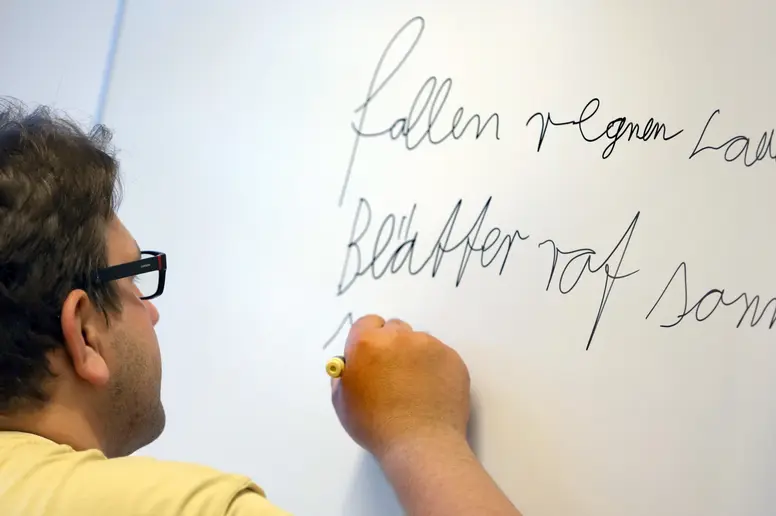 fallen regnen Lau
Blätter raf sonn